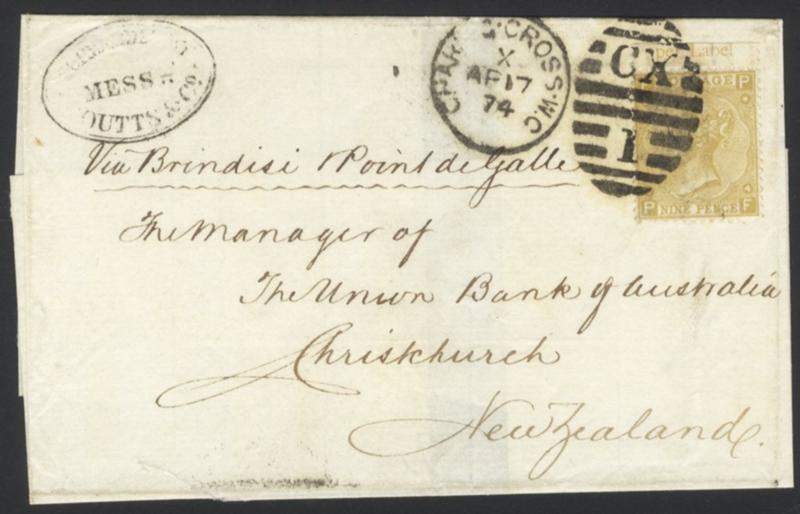 MESSRS
COUTTS & Co.
CHARING·CROSS·W.C
X
AP 17
74
CX
1
per Label
P
P F
NINE PENCE
Via Brindisi & Point de Galle
The Manager of
The Union Bank of Australia
Christchurch
New Zealand.